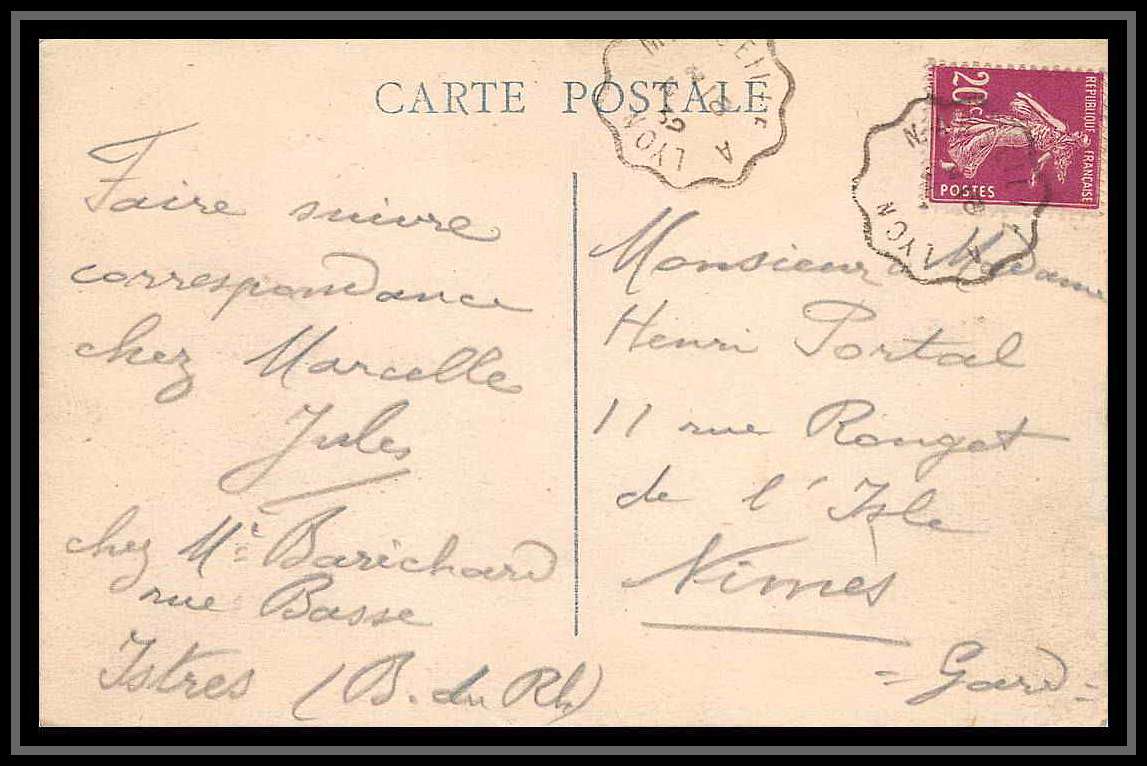 CARTE POSTALE
Faire suivre
correspondance
chez Marcelle
Jules
chez Mr Barichard
rue Basse
Istres (B. du Rh)
A LYON
REPUBLIQUE FRANÇAISE
20c
POSTES
A LYON
Monsieur & Madame
Henri Portal
11 rue Rouget
de l'Isle
Nimes
= Gard =